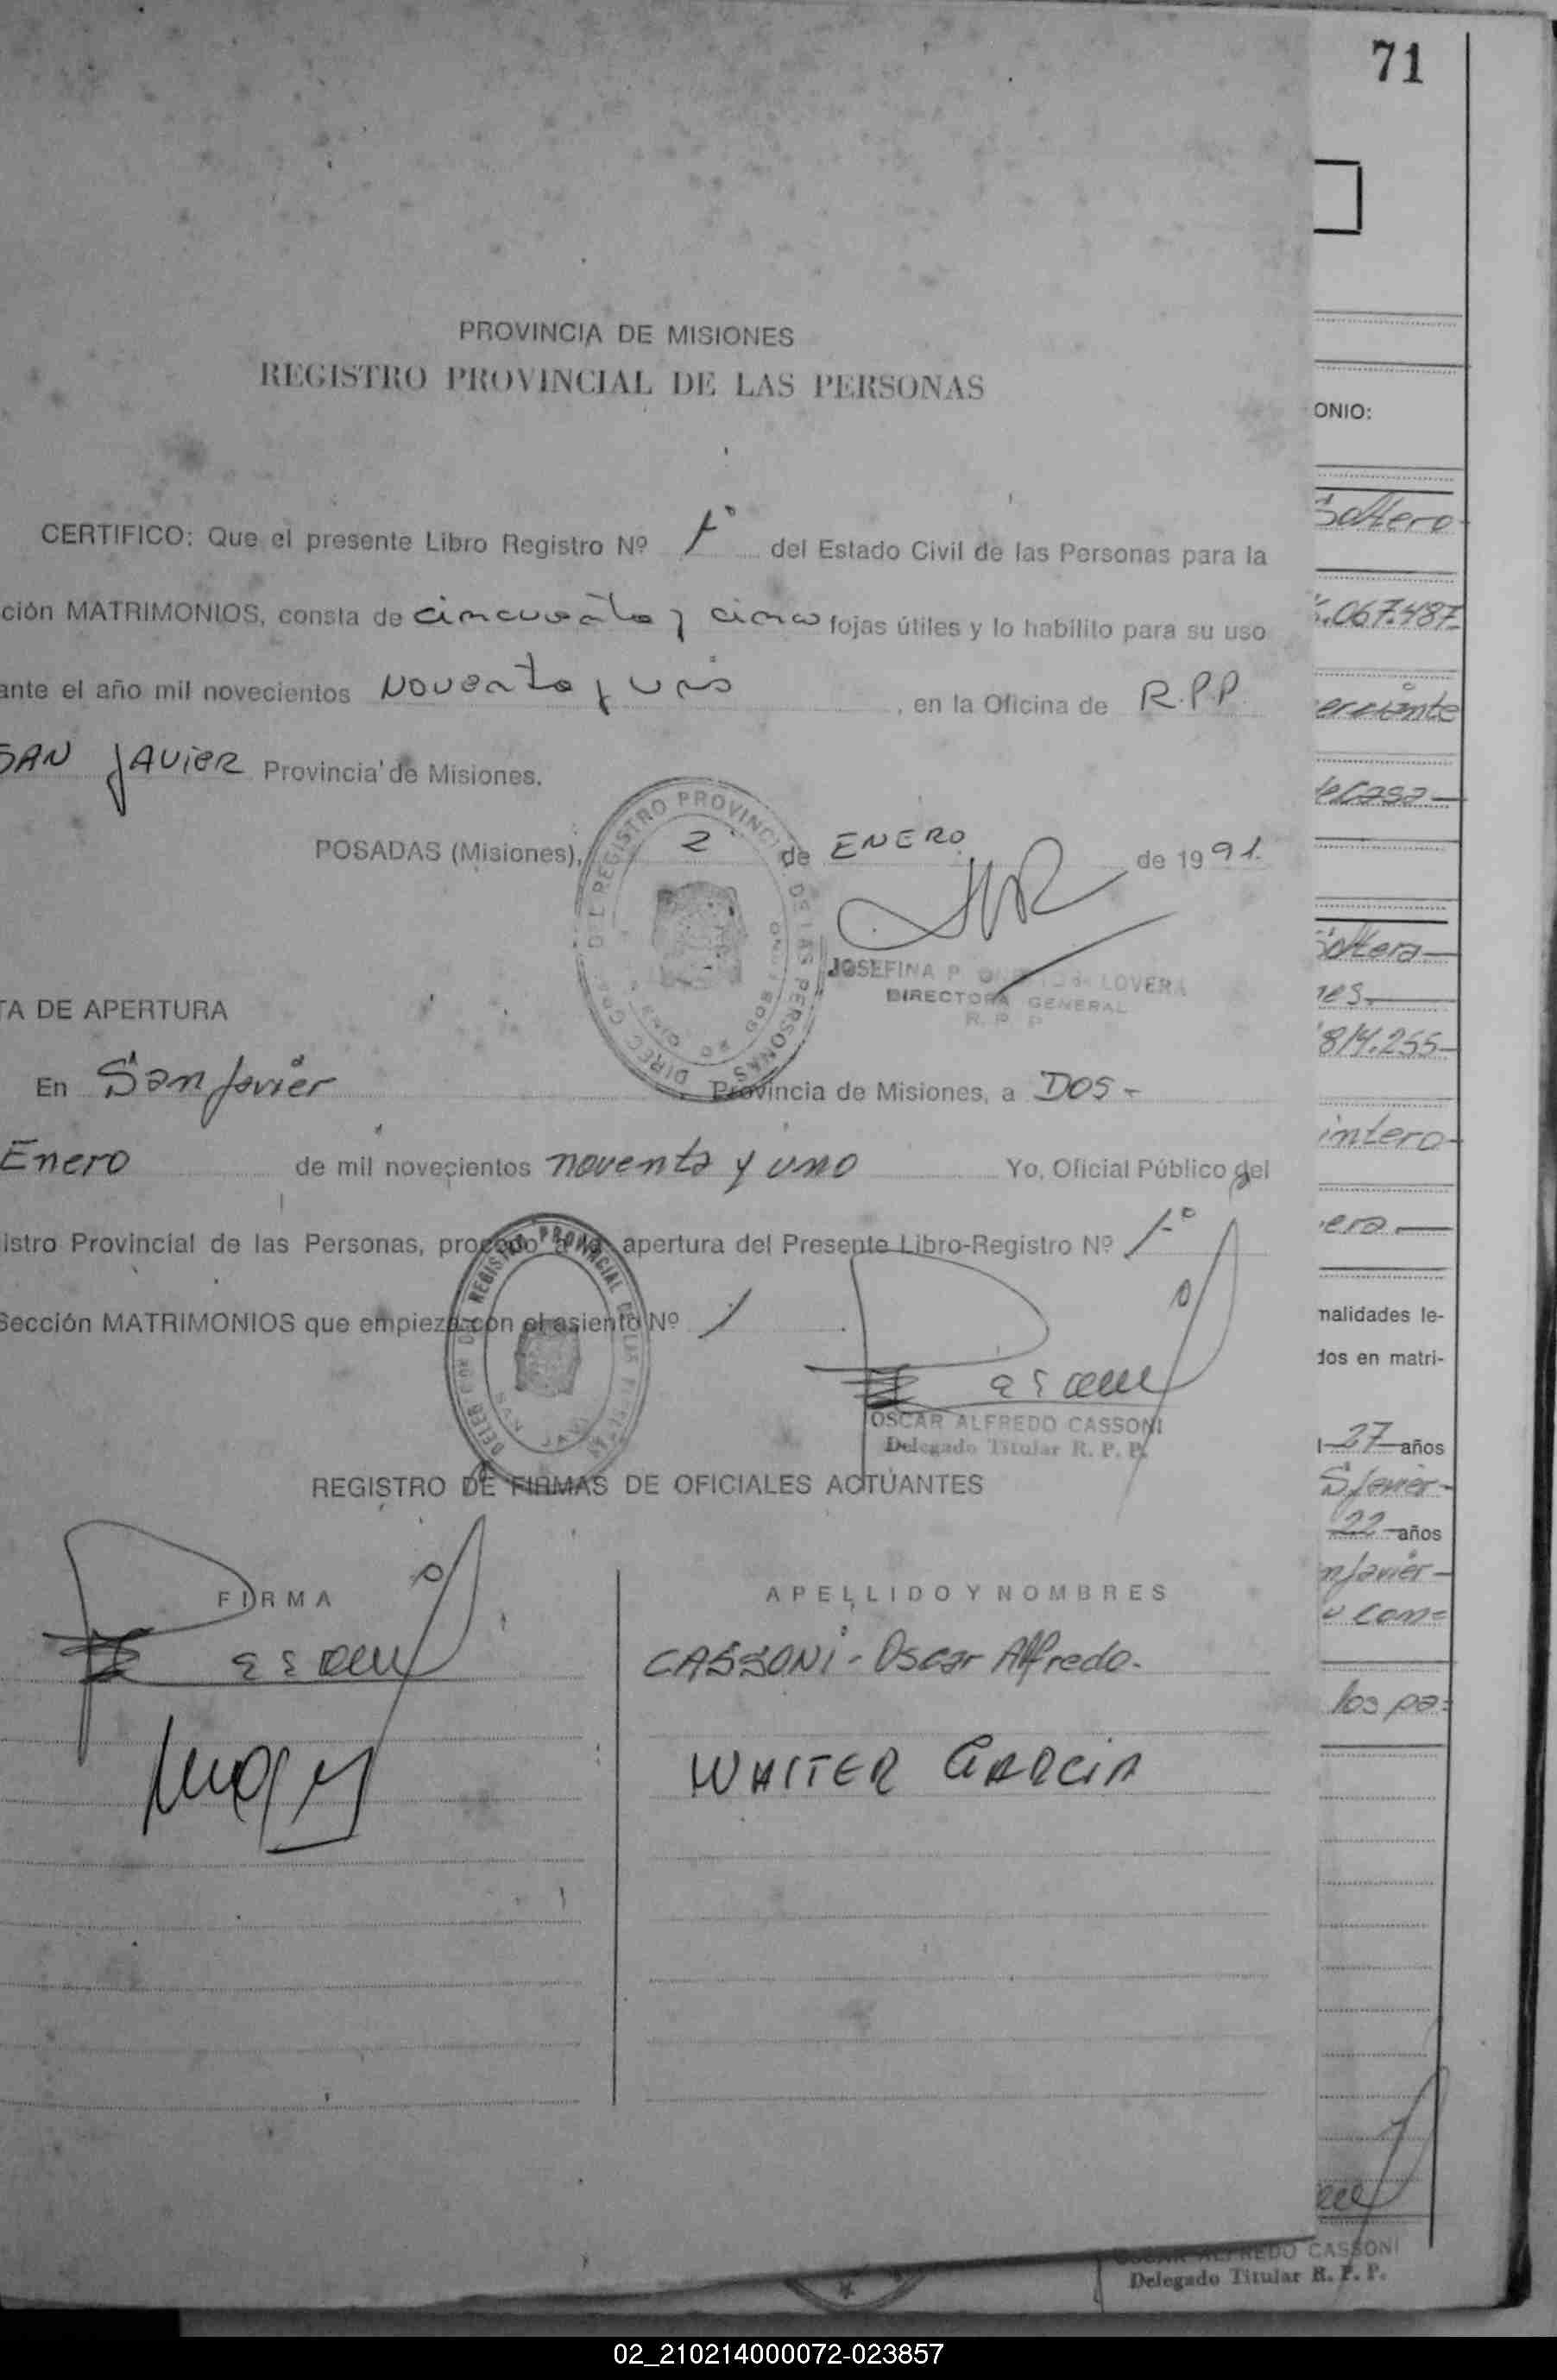 71
PROVINCIA DE MISIONES
REGISTRO PROVINCIAL DE LAS PERSONAS
CERTIFICO: Que el presente Libro Registro Nº 1º del Estado Civil de las Personas para la
ción MATRIMONIOS, consta de cincuenta y cinco fojas útiles y lo habilito para su uso
ante el año mil novecientos Noventa y uno, en la Oficina de R.P.P.
SAN JAVIER Provincia de Misiones.
POSADAS (Misiones), 2 de ENERO de 1991.
JOSEFINA P. LOVERA
DIRECTORA GENERAL
R. P. P.
TA DE APERTURA
En San Javier Provincia de Misiones, a DOS -
Enero de mil novecientos noventa y uno Yo, Oficial Público del
istro Provincial de las Personas, procedo a la apertura del Presente Libro-Registro Nº 1º
Sección MATRIMONIOS que empieza con el asiento Nº 1
OSCAR ALFREDO CASSONI
Delegado Titular R. P. P.
REGISTRO DE FIRMAS DE OFICIALES ACTUANTES
FIRMA APELLIDO Y NOMBRES
CASSONI - Oscar Alfredo.
WALTER GARCIA
ONIO:
Soltero
.067.487
erciante
de casa
Soltera
nes.
814.255
intero
era
malidades le-
dos en matri-
27 años
S Javier
22 años
n Javier
u com=
los pa=
OSCAR ALFREDO CASSONI
Delegado Titular R. P. P.
02_210214000072-023857